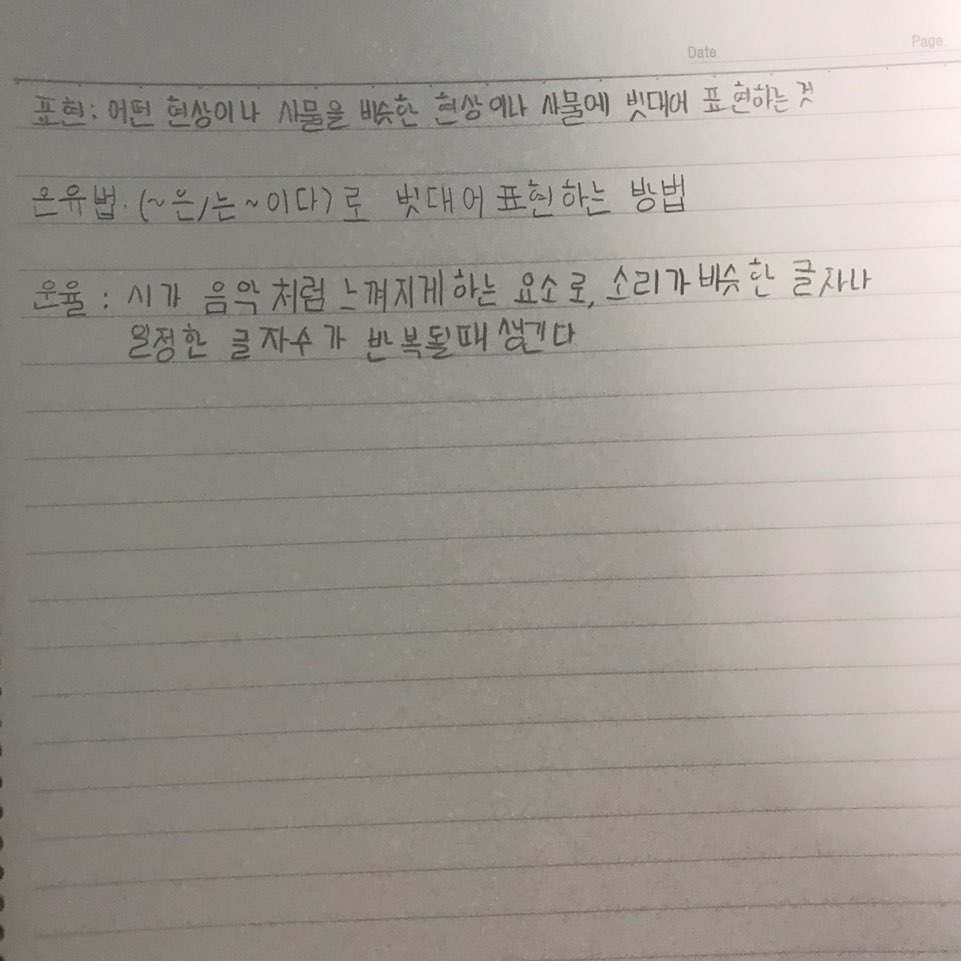 Date.
Page.
표현: 어떤 현상이나 사물을 비슷한 현상이나 사물에 빗대어 표현하는 것
은유법. (~은/는 ~이다)로 빗대어 표현하는 방법
운율 : 시가 음악처럼 느껴지게하는 요소로, 소리가 비슷한 글자나
일정한 글자수가 반복될때 생긴다